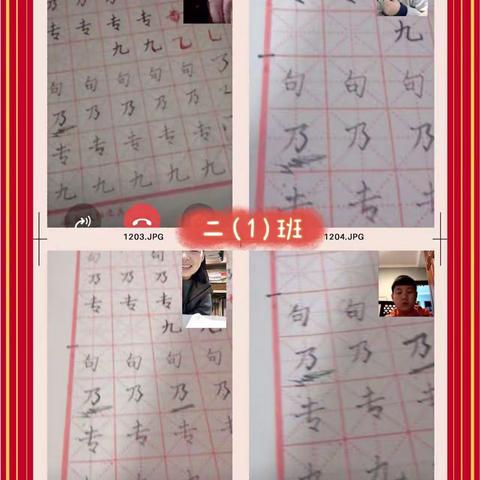 专 专 专 专
九 九
句 句 句 句 句
乃 乃 乃 乃 乃
专 专 专 专 专
九 九 九 九 九
九
句 句 句
乃 乃 乃
专 专 专
二（1）班
1203.JPG
1204.JPG
句
乃 乃 乃
专 专 专
九
句 句 句 句
乃 乃 乃 乃
专 专 专
句 句
乃 乃 乃
专 专 专
九 九